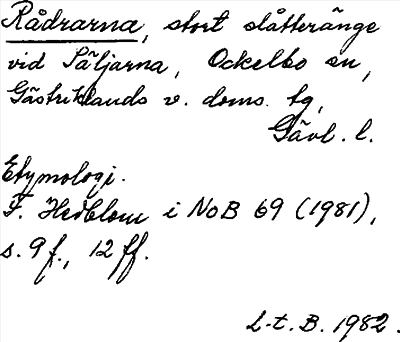 Rådrarna, stort slåtteränge
vid Säljarna, Ockelbo sn,
Gästriklands v. doms. tg,
Gävl. l.
Etymologi.
F. Hedblom i NoB 69 (1981),
s. 9 f., 12 ff.
L-t. B. 1982.